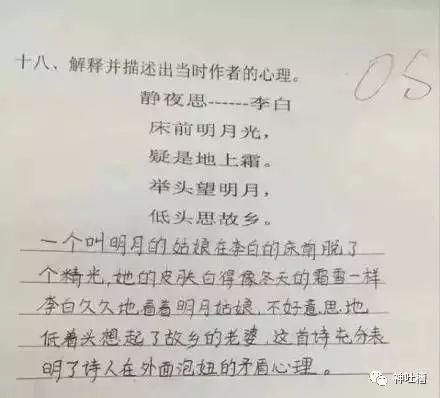 十八、解释并描述出当时作者的心理。
静夜思------李白
床前明月光，
疑是地上霜。
举头望明月，
低头思故乡。
一个叫明月的姑娘在李白的床前脱了
个精光，她的皮肤白得像冬天的霜雪一样
李白久久地看着明月姑娘，不好意思地
低着头想起了故乡的老婆，这首诗充分表
明了诗人在外面泡妞的矛盾心理。
神吐槽